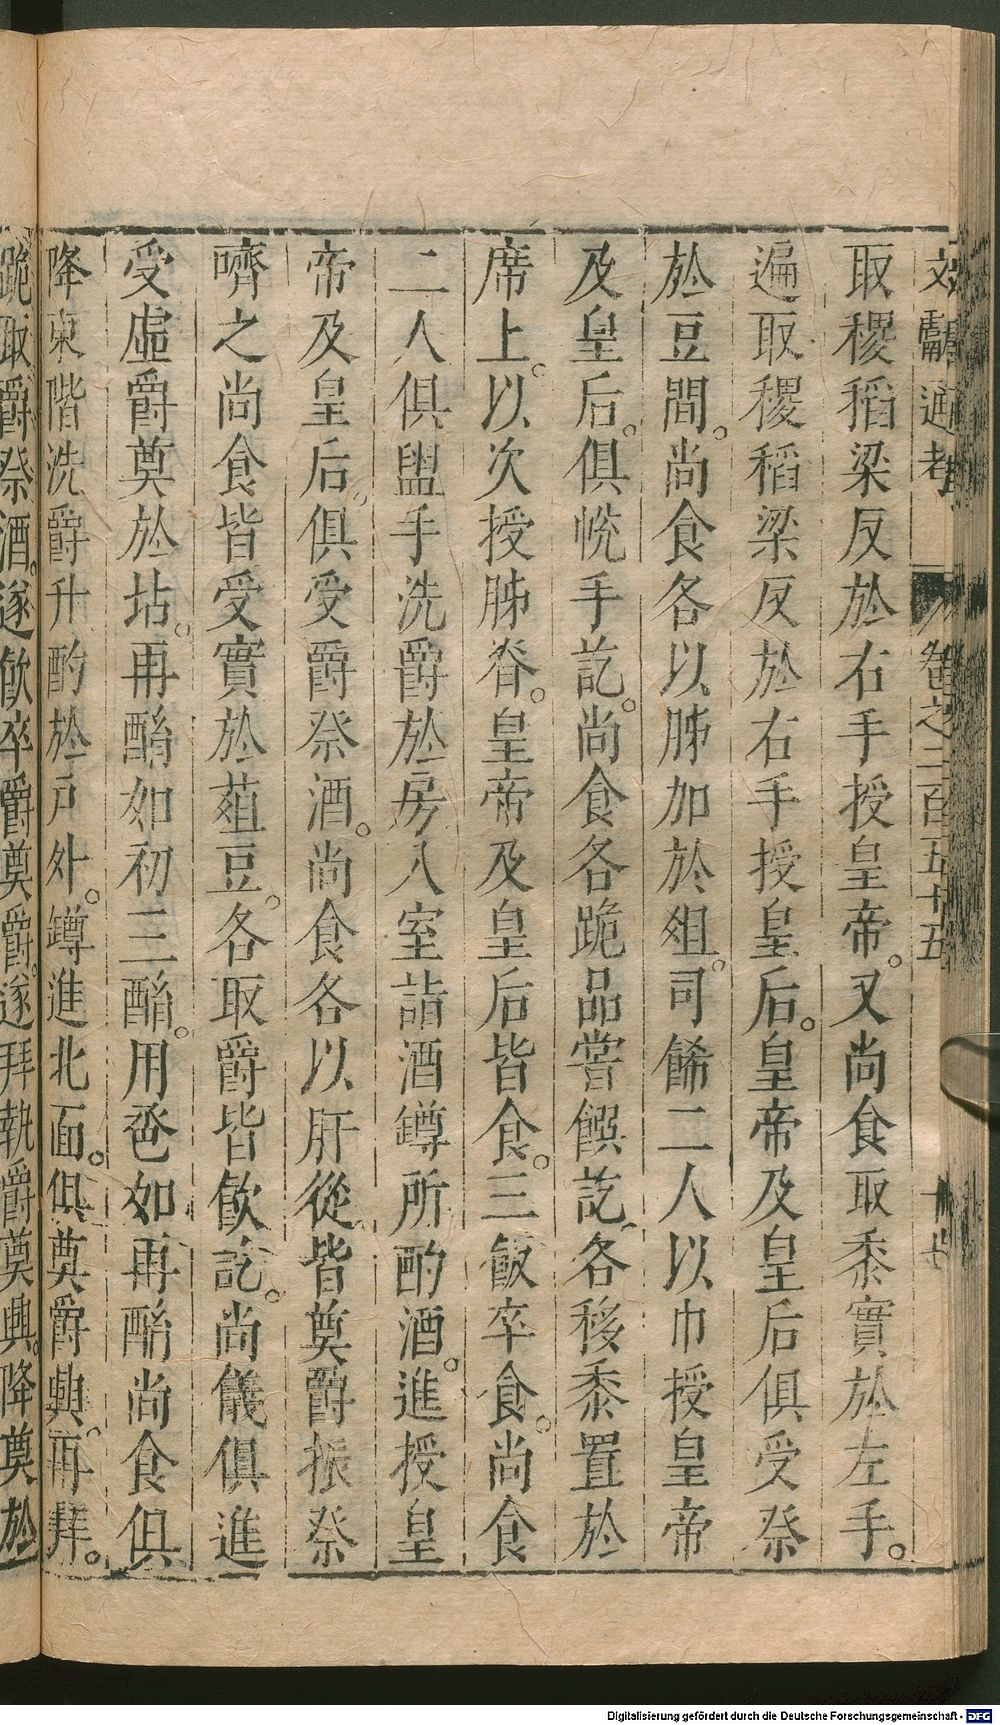 文獻通考 卷之二百五十五 十七
取稷稻梁反於右手授皇帝。又尚食取黍實於左手。
遍取稷稻梁反於右手授皇后。皇帝及皇后俱受祭
於豆間。尚食各以胏加於俎。司餙二人以巾授皇帝
及皇后。俱帨手訖。尚食各跪品嘗饌訖。各移黍置於
席上。以次授胏脊。皇帝及皇后皆食。三飯卒食。尚食
二人俱盥手洗爵於房入室詣酒罇所酌酒。進授皇
帝及皇后。俱受爵祭酒。尚食各以肝從。皆奠爵振祭
嚌之尚食皆受實於葅豆。各取爵皆飲訖。尚儀俱進
受虛爵奠於坫。再酳如初三酳。用卺如再酳尚食俱
降東階洗爵升酌於戶外。罇進北面。俱奠爵興。再拜。
跪取爵祭酒。遂飲卒爵奠爵。遂拜執爵奠興。降奠於
Digitalisierung gefördert durch die Deutsche Forschungsgemeinschaft - DFG